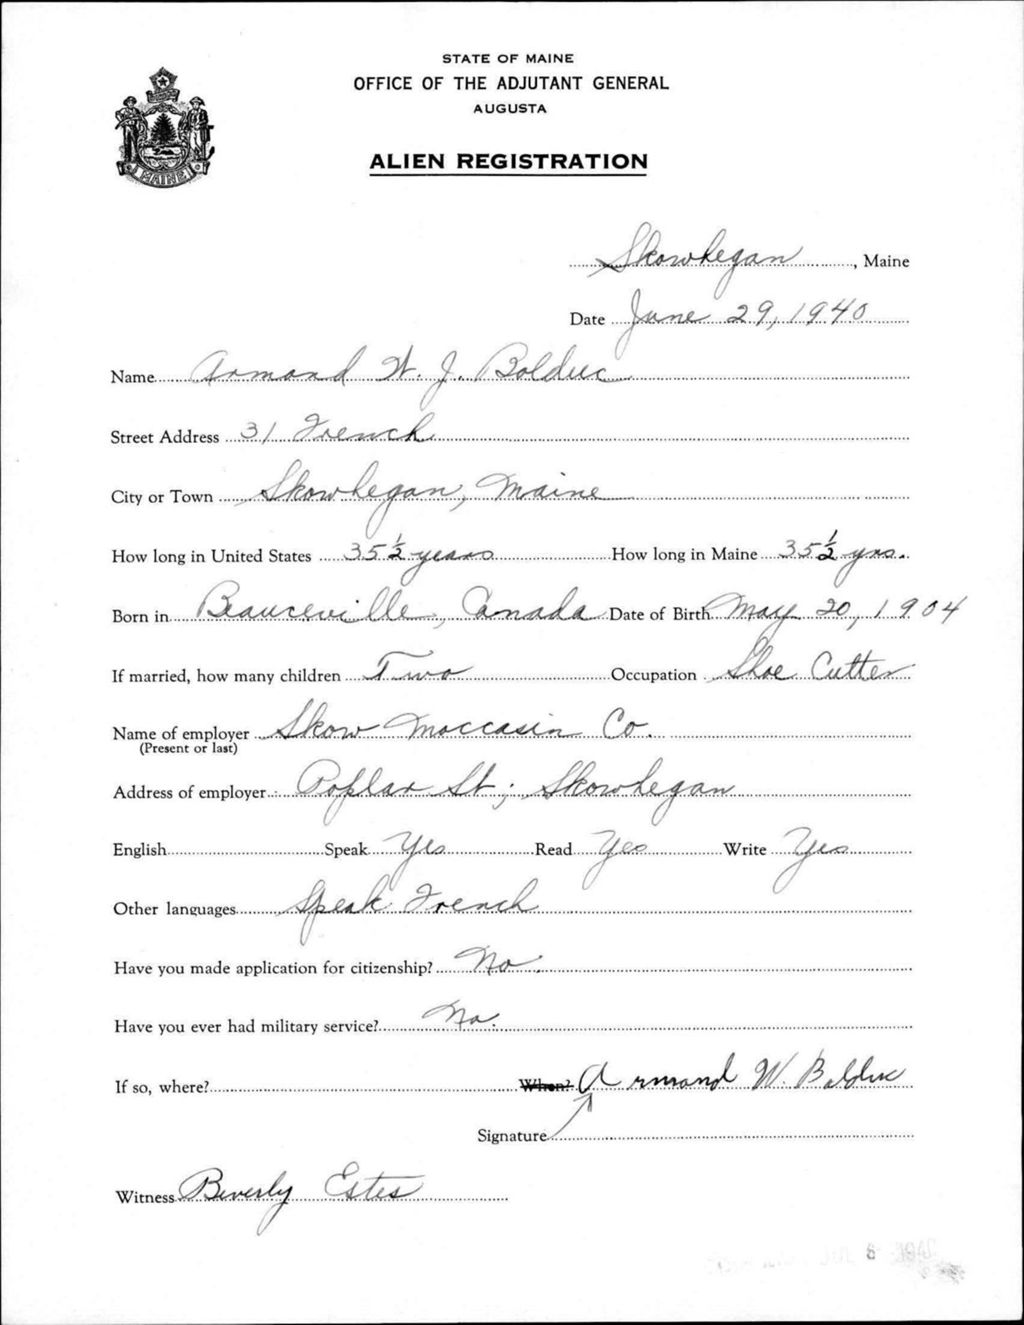 STATE OF MAINE
OFFICE OF THE ADJUTANT GENERAL
AUGUSTA
ALIEN REGISTRATION
MAINE
Skowhegan, Maine
Date June 29, 1940
Name Armand W. J. Bolduc
Street Address 31 French
City or Town Skowhegan, Maine
How long in United States 35 1/2 years How long in Maine 35 1/2 yrs.
Born in Beauceville, Canada Date of Birth May 20, 1904
If married, how many children Two Occupation Shoe Cutter
Name of employer Skow Moccasin Co.
(Present or last)
Address of employer Poplar St; Skowhegan
English Speak Yes Read Yes Write Yes
Other languages Speak French
Have you made application for citizenship? No.
Have you ever had military service? No.
If so, where? When? Armand W. Bolduc
Signature
Witness Beverly Estes